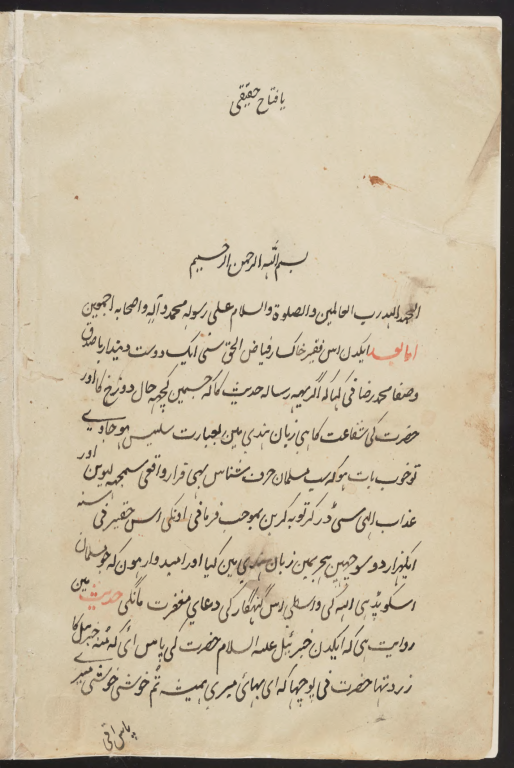 یا فتاح حقیقی
بسم اللہ الرحمن الرحیم
الحمد للہ رب العالمین والصلوۃ والسلام علی رسولہ محمد وآلہ واصحابہ اجمعین
اما بعد ایکدن اس فقیر خاکسار فیاض الحق سی ایک دوست دیندار با صدق
وصفا محمد رضا نی کہا کہ اگر یہہ رسالہ حدیث کا کہ جسمین کچہہ حال دوزخ کا اور
حضرت کی شفاعت کا ہی زبان ہندی مین بعبارت سلیس ہو جاوے
تو خوب بات ہو کہ سب مسلمان حرف شناس بہی قرار واقعی سمجہہ لیوین اور
عذاب الہی سی ڈر کر توبہ کرین بموجب فرمانی اونکی اس حقیر نی سنہ
ایکہزار دو سو ہجری مین زبان ہندی مین کیا اور امیدوار ہون کہ جو مسلمان
اسکو پڑہی اللہ کی واسطی اس گنہگار کی دعای مغفرت مانگی حدیث مین
روایت ہی کہ ایکدن جبرئیل علیہ السلام حضرت کی پاس آئی کہ منہ جبرئیل کا
زرد تہا حضرت نی پوچہا کہ ای بہائی میری ہمیشہ تم خوشی خوشی میرے
پاس آتی